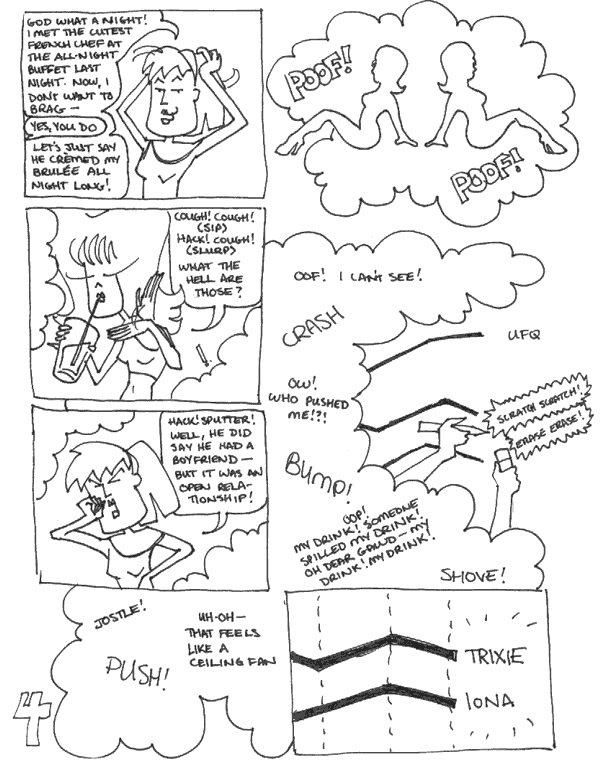 GOD WHAT A NIGHT!
I MET THE CUTEST
FRENCH CHEF AT
THE ALL-NIGHT
BUFFET LAST
NIGHT. NOW, I
DON'T WANT TO
BRAG —
YES, YOU DO
LET'S JUST SAY
HE CREMED MY
BRULÉE ALL
NIGHT LONG!
POOF!
POOF!
COUGH! COUGH!
(SIP)
HACK! COUGH!
(SLURP)
WHAT THE
HELL ARE
THOSE?
!
OOF! I CAN'T SEE!
CRASH
UFQ
OW!
WHO PUSHED
ME!?!
SCRATCH SCRATCH!
ERASE ERASE!
BUMP!
HACK! SPUTTER!
WELL, HE DID
SAY HE HAD A
BOYFRIEND —
BUT IT WAS AN
OPEN RELA-
TIONSHIP!
OOP!
MY DRINK! SOMEONE
SPILLED MY DRINK!
OH DEAR GAWD — MY
DRINK! MY DRINK!
SHOVE!
JOSTLE!
PUSH!
UH-OH —
THAT FEELS
LIKE A
CEILING FAN
TRIXIE
IONA
4